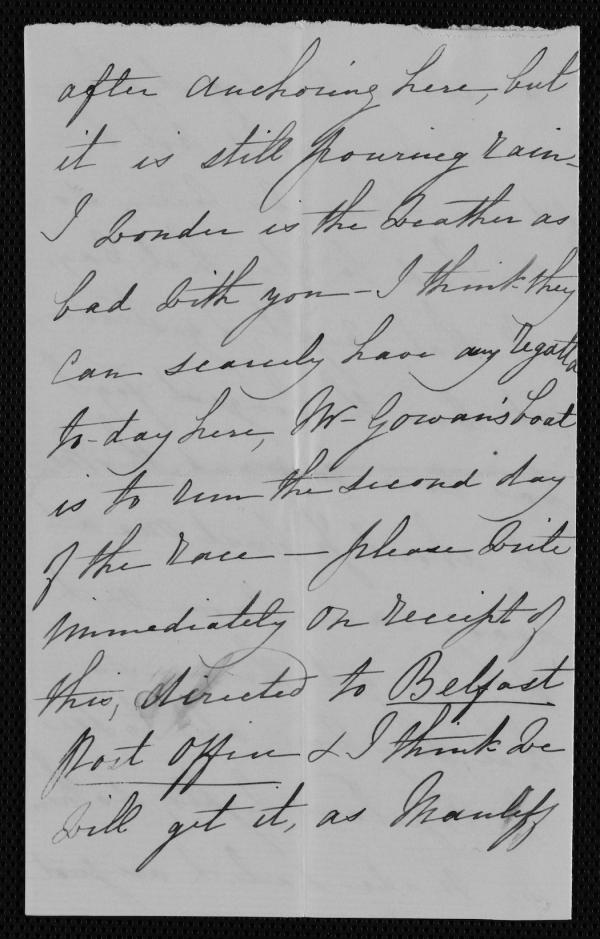 after anchoring here, but
it is still pouring rain -
I wonder is the weather as
bad with you - I think they
can scarcely have any regatta
to-day here, Mr Gowan's boat
is to run the second day
of the race - please write
immediately on receipt of
this, directed to Belfast
Post Office & I think we
will get it, as